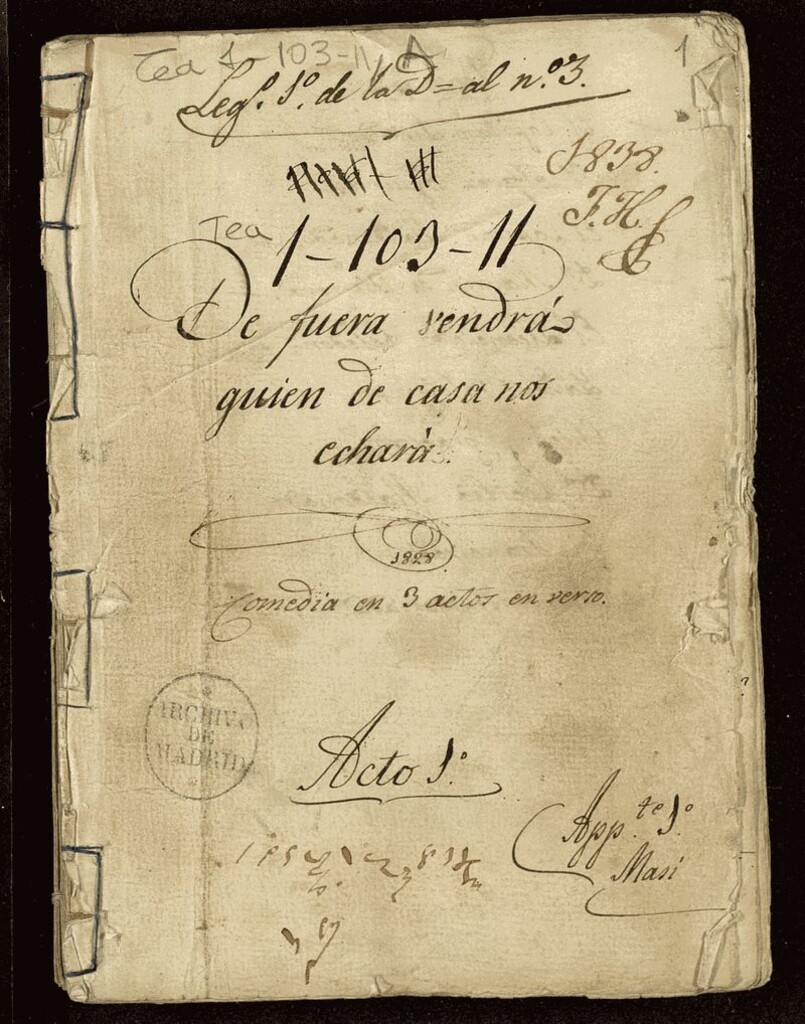 Tea 1-103-11, A
1
Leg.º 1º. de la D= al nº.3.
1838.
F.H.
Tea
1-103-11
De fuera vendrá
quien de casa nos
echará.
1828
Comedia en 3 actos en verso.
ARCHIVO
DE
MADRID
Acto 1º.
App.te 1º
Masi